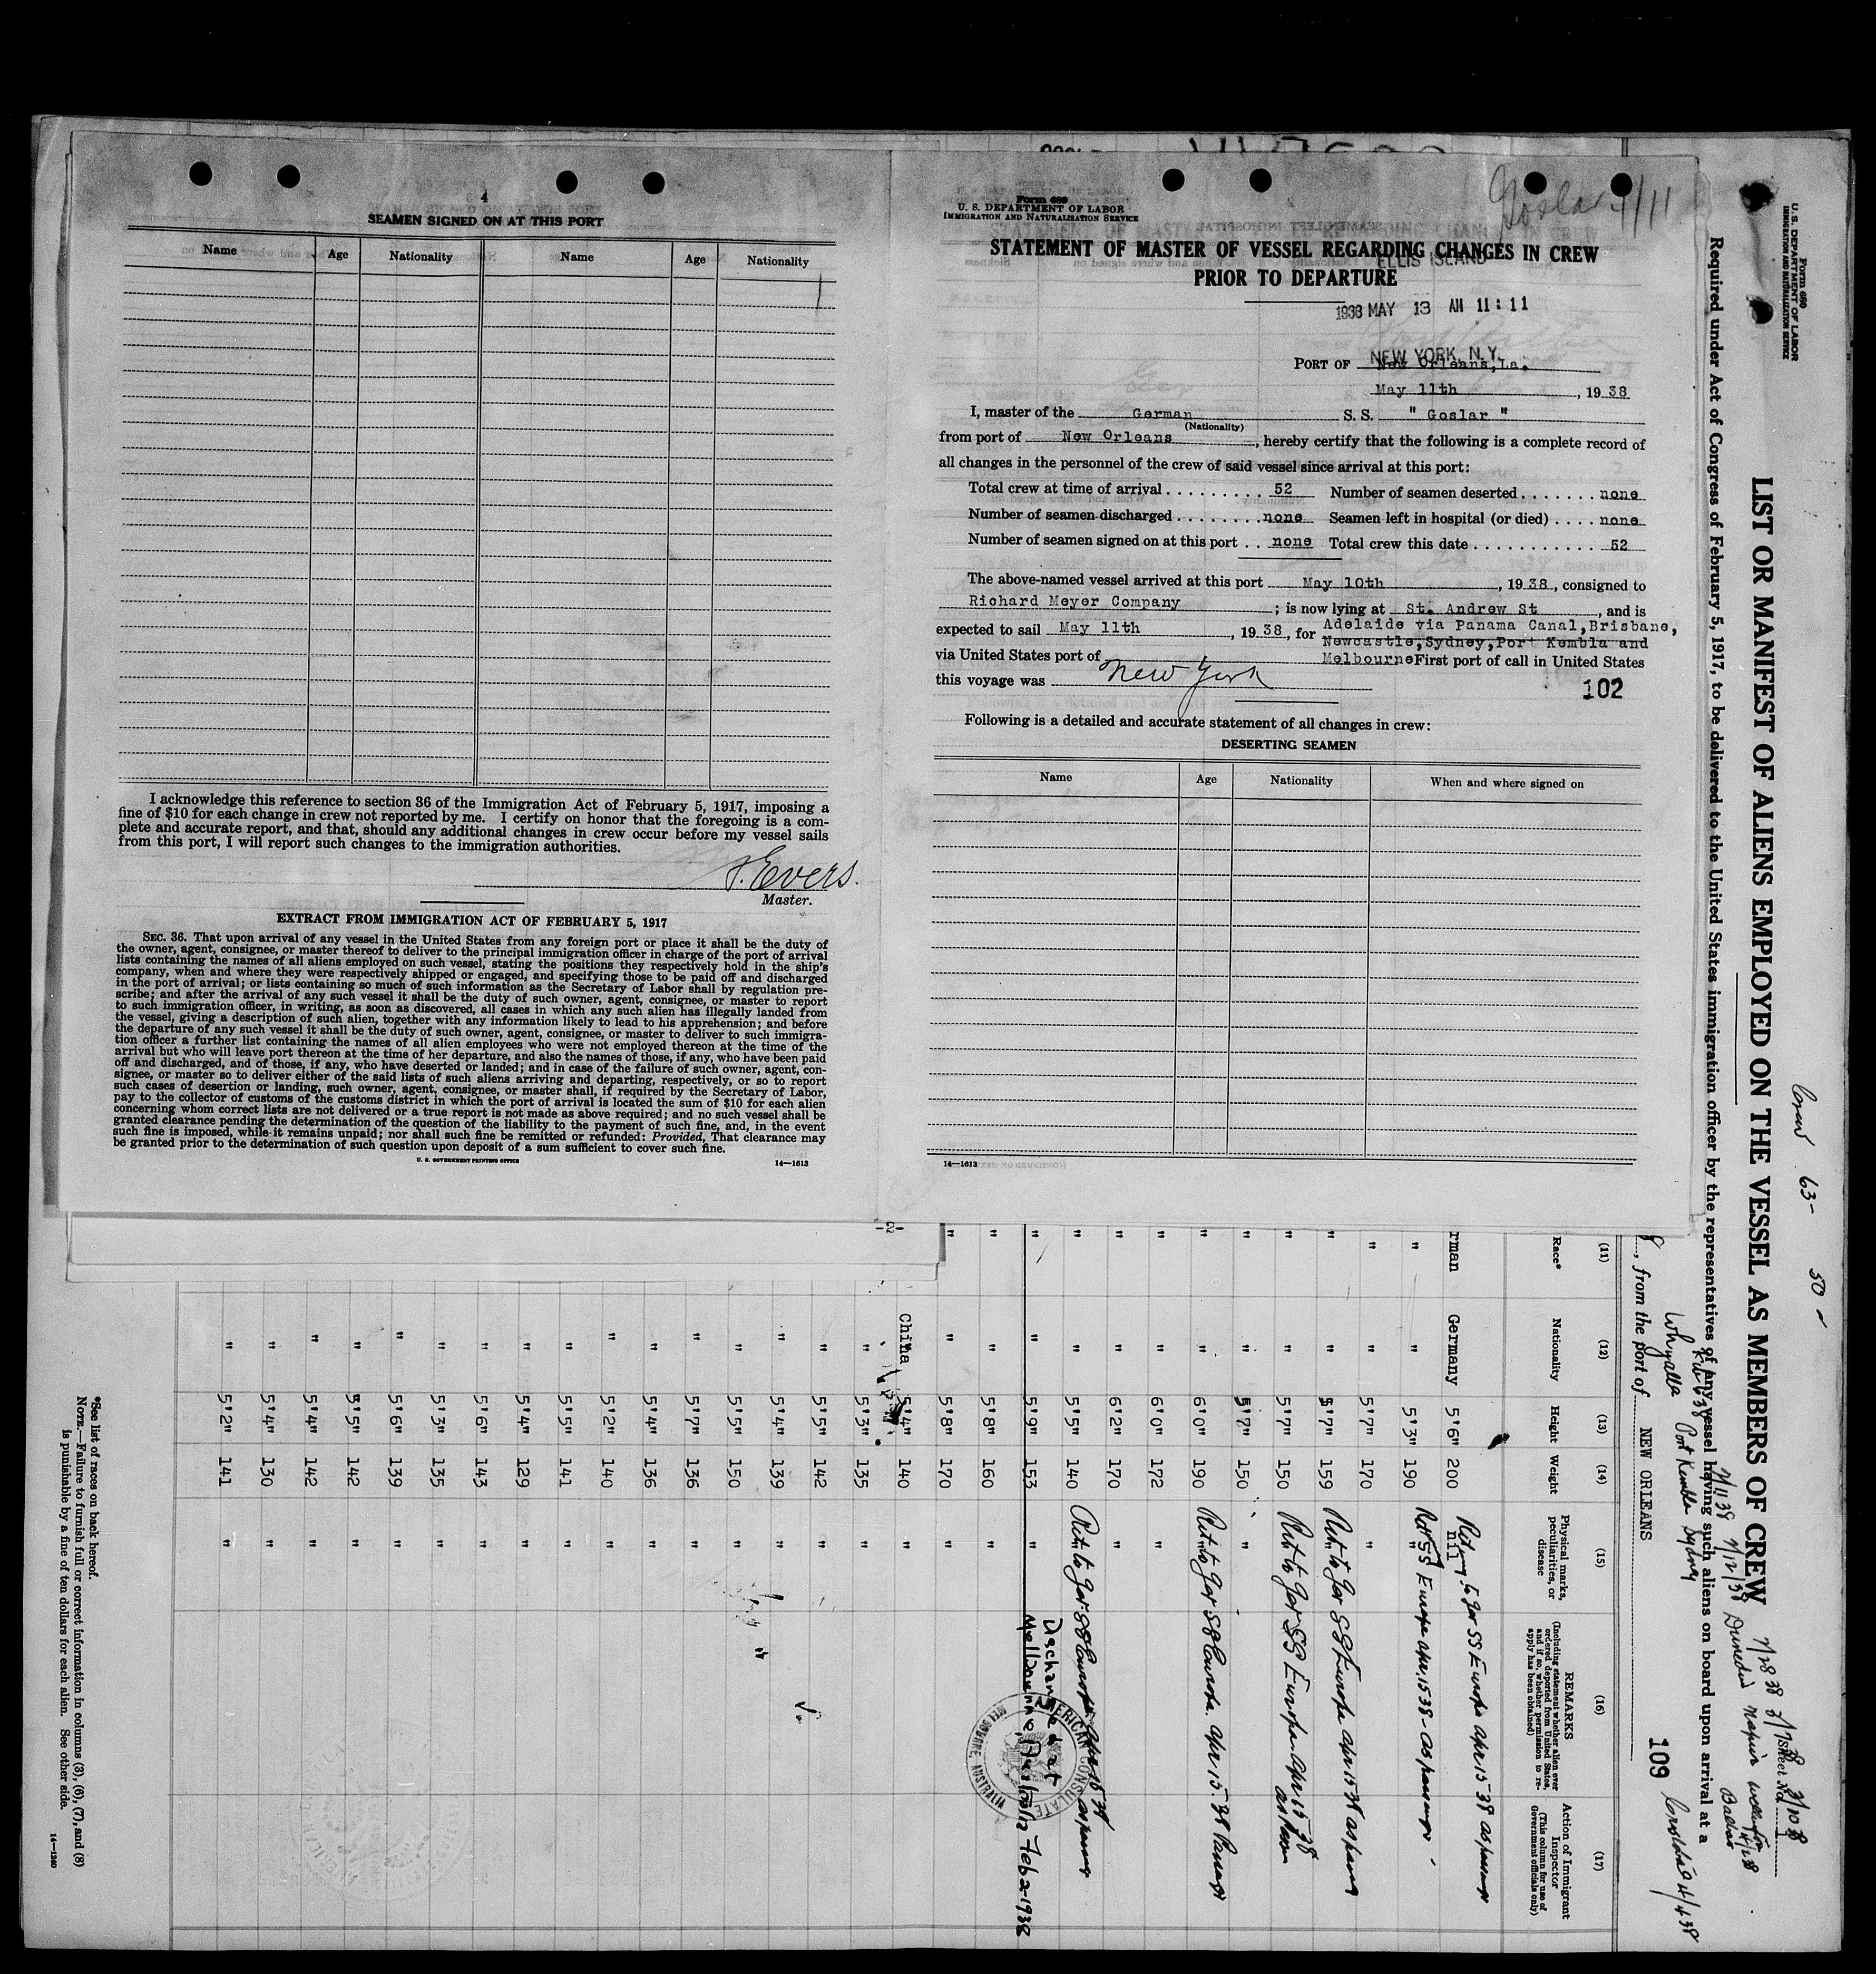 4
SEAMEN SIGNED ON AT THIS PORT
Name Age Nationality Name Age Nationality
I acknowledge this reference to section 36 of the Immigration Act of February 5, 1917, imposing a
fine of $10 for each change in crew not reported by me. I certify on honor that the foregoing is a com-
plete and accurate report, and that, should any additional changes in crew occur before my vessel sails
from this port, I will report such changes to the immigration authorities.
Evers.
Master.
EXTRACT FROM IMMIGRATION ACT OF FEBRUARY 5, 1917
SEC. 36. That upon arrival of any vessel in the United States from any foreign port or place it shall be the duty of
the owner, agent, consignee, or master thereof to deliver to the principal immigration officer in charge of the port of arrival
lists containing the names of all aliens employed on such vessel, stating the positions they respectively hold in the ship's
company, when and where they were respectively shipped or engaged, and specifying those to be paid off and discharged
in the port of arrival; or lists containing so much of such information as the Secretary of Labor shall by regulation pre-
scribe; and after the arrival of any such vessel it shall be the duty of such owner, agent, consignee, or master to report
to such immigration officer, in writing, as soon as discovered, all cases in which any such alien has illegally landed from
the vessel, giving a description of such alien, together with any information likely to lead to his apprehension; and before
the departure of any such vessel it shall be the duty of such owner, agent, consignee, or master to deliver to such immigra-
tion officer a further list containing the names of all alien employees who were not employed thereon at the time of the
arrival but who will leave port thereon at the time of her departure, and also the names of those, if any, who have been paid
off and discharged, and of those, if any, who have deserted or landed; and in case of the failure of such owner, agent, con-
signee, or master so to deliver either of the said lists of such aliens arriving and departing, respectively, or so to report
such cases of desertion or landing, such owner, agent, consignee, or master shall, if required by the Secretary of Labor,
pay to the collector of customs of the customs district in which the port of arrival is located the sum of $10 for each alien
concerning whom correct lists are not delivered or a true report is not made as above required; and no such vessel shall be
granted clearance pending the determination of the question of the liability to the payment of such fine, and, in the event
such fine is imposed, while it remains unpaid; nor shall such fine be remitted or refunded: Provided, That clearance may
be granted prior to the determination of such question upon deposit of a sum sufficient to cover such fine.
U. S. GOVERNMENT PRINTING OFFICE 14—1613
Goslar 5/11
Form 689
U. S. DEPARTMENT OF LABOR
IMMIGRATION AND NATURALIZATION SERVICE
STATEMENT OF MASTER OF VESSEL REGARDING CHANGES IN CREW
ELLIS ISLAND
PRIOR TO DEPARTURE
1938 MAY 13 AM 11:11
NEW YORK, N.Y.
PORT OF New Orleans,La.
May 11th, 1938
I, master of the German S. S. " Goslar "
(Nationality)
from port of New Orleans, hereby certify that the following is a complete record of
all changes in the personnel of the crew of said vessel since arrival at this port:
Total crew at time of arrival 52 Number of seamen deserted none
Number of seamen discharged none Seamen left in hospital (or died) none
Number of seamen signed on at this port none Total crew this date 52
The above-named vessel arrived at this port May 10th, 1938, consigned to
Richard Meyer Company; is now lying at St. Andrew St, and is
expected to sail May 11th, 1938, for Adelaide via Panama Canal,Brisbane,
Newcastle,Sydney,Port Kembla and
via United States port of Melbourne First port of call in United States
this voyage was New York
102
Following is a detailed and accurate statement of all changes in crew:
DESERTING SEAMEN
Name Age Nationality When and where signed on
14—1613
-2-
Form 680
U. S. DEPARTMENT OF LABOR
IMMIGRATION AND NATURALIZATION SERVICE
LIST OR MANIFEST OF ALIENS EMPLOYED ON THE VESSEL AS MEMBERS OF CREW
Required under Act of Congress of February 5, 1917, to be delivered to the United States immigration officer by the representatives of any vessel having such aliens on board upon arrival at a
Crew 63- 50
Whyalla Port Kembla Sydney
Dunedin Napier
, from the port of NEW ORLEANS
109
(11) (12) (13) (14) (15) (16) (17)
Race* Nationality Height Weight Physical marks, peculiarities, or disease REMARKS (Including statement whether alien ever ordered deported from United States, and if so, whether permission to reapply has been obtained) Action of Immigrant Inspector (This column for use of Government officials only)
rman Germany 5'6" 200 nil
" " 5'3" 190 "
" " 5'7" 170 "
" " 5'7" 159
" " 5'7" 150
" " 5'7" 150 "
" " 6'0" 190
" " 6'0" 172 "
" " 6'2" 170 "
" " 5'5" 140
" " 5'9" 153 " Discharged at Melbourne, Australia Feb 2-1938
AMERICAN CONSULATE MELBOURNE, AUSTRALIA
" " 5'8" 160 "
" " 5'8" 170 "
China 5'4" 140 "
" 5'3" 135 "
" 5'5" 142 "
" 5'4" 139 "
" 5'5" 150 "
" 5'7" 136 "
" 5'4" 136 "
" 5'2" 140 "
" 5'5" 141 "
" 5'4" 129 "
" 5'6" 143 "
" 5'3" 135 "
" 5'6" 139 "
" 5'5" 142 "
" 5'4" 142 "
" 5'4" 130 "
" 5'2" 141 "
*See list of races on back hereof.
NOTE.—Failure to furnish full or correct information in columns (3), (6), (7), and (8)
is punishable by a fine of ten dollars for each alien. See other side.
14—1240